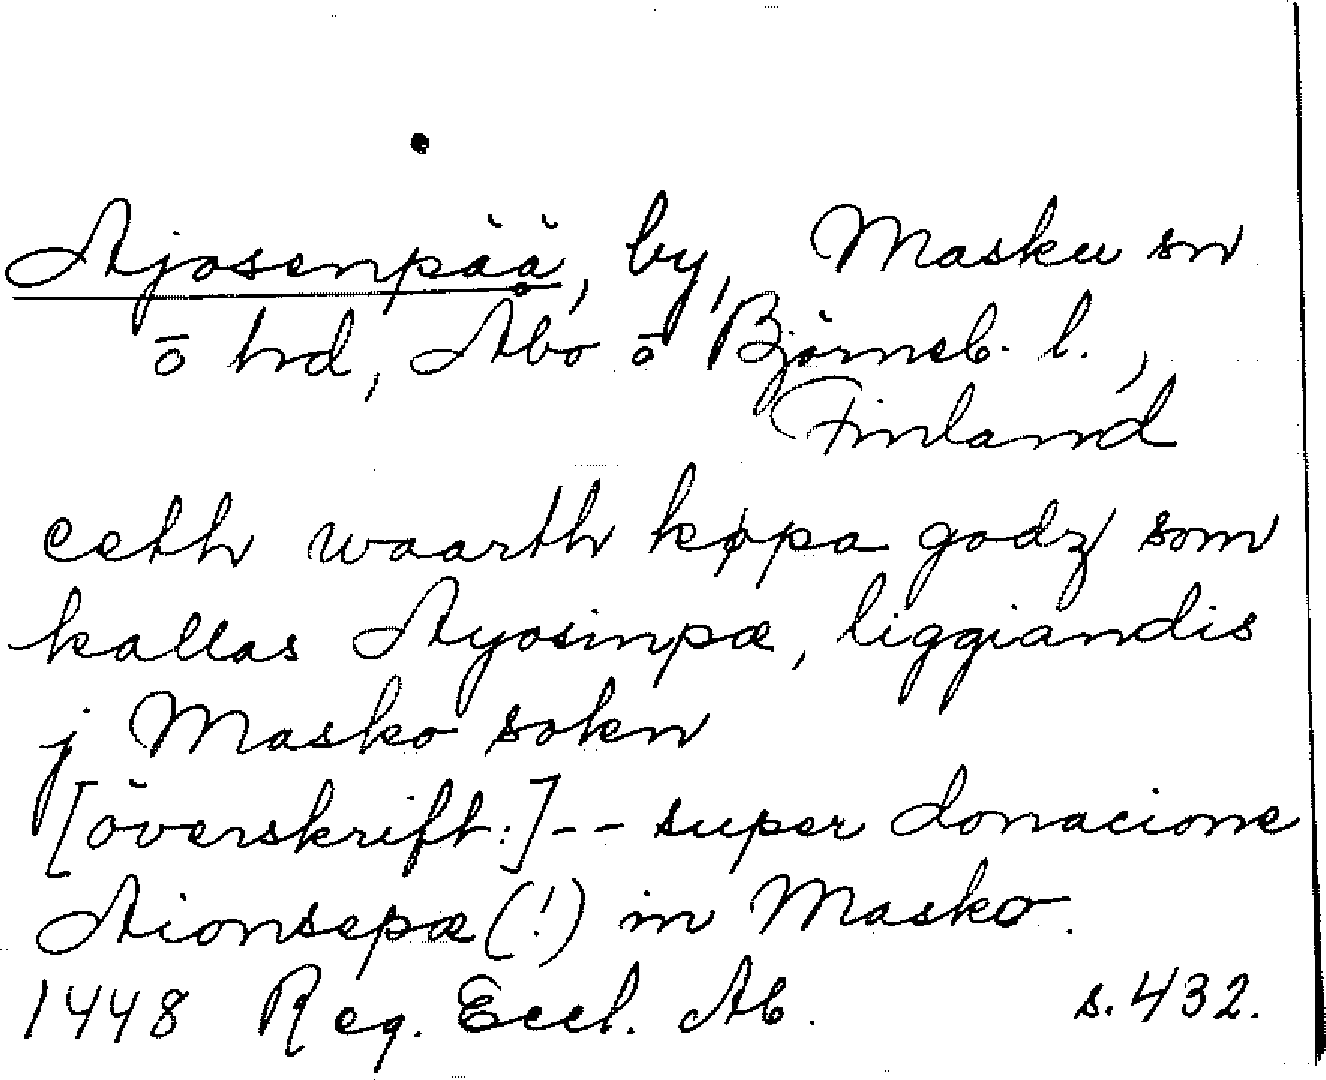 Ajosenpää, by, Masku sn
o hd, Åbo o Björneb. l.,
Finland
eeth waarth køpa godz som
kallas Ayosinpæ, liggiandis
j Masko sokn
[överskrift:]-- super donacione
Aionsepæ(!) in Masko.
1448 Reg. Eccl. Ab. s. 432.